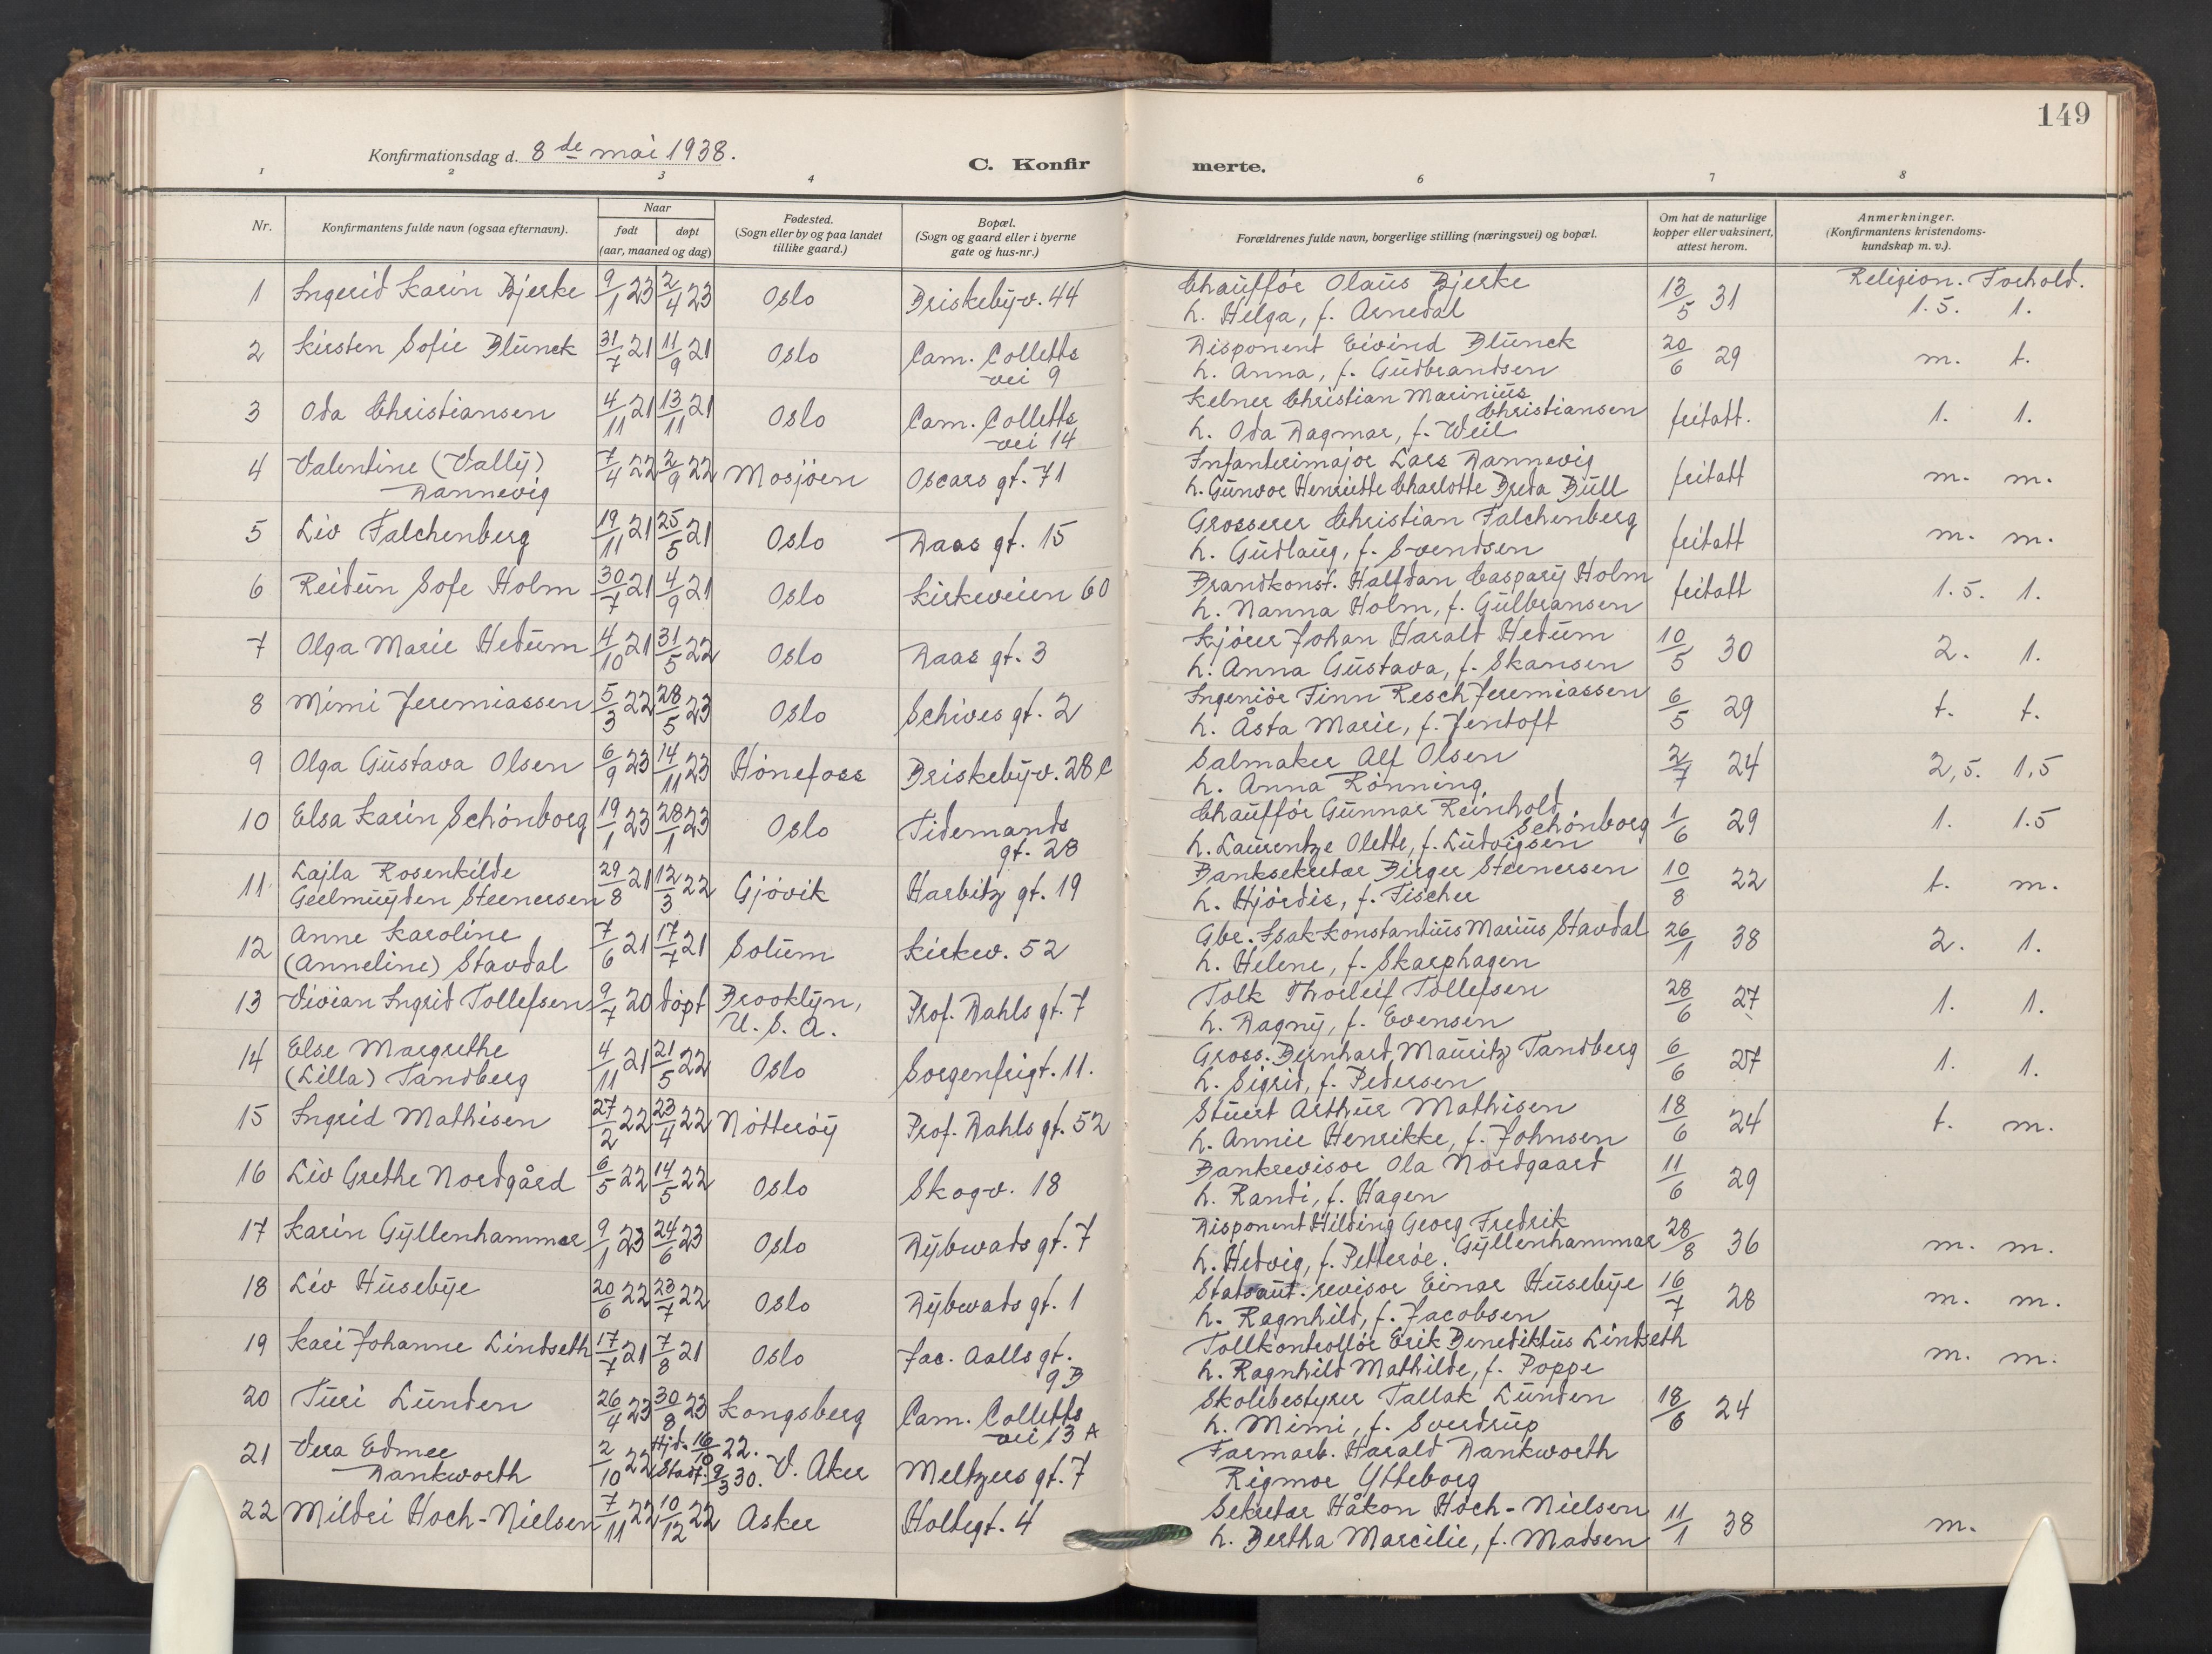 149
Konfirmationsdag d. 8de mai 1938.
C. Konfirmerte.
1 2 3 4 6 7 8
Nr.
Konfirmantens fulde navn (ogsaa efternavn).
Naar
født døpt
(aar, maaned og dag)
Fødested.
(Sogn eller by og paa landet
tillike gaard.)
Bopæl.
(Sogn og gaard eller i byerne
gate og hus-nr.)
Forældrenes fulde navn, borgerlige stilling (næringsvei) og bopæl.
Om hat de naturlige
kopper eller vaksinert,
attest herom.
Anmerkninger.
(Konfirmantens kristendoms-
kundskap m. v.).
Religion. Forhold.
1 Ingerid Karin Bjerke 9/1 23 2/4 23 Oslo Briskebyv. 44 Chauffør Olaus Bjerke 13/5 31 1.5. 1.
h. Helga, f. Arnedal
2 Kirsten Sofie Blunck 31/7 21 11/9 21 Oslo Cam. Colletts Disponent Eivind Blunck 20/6 29 m. t.
vei 9 h. Anna, f. Gudbrandsen
3 Oda Christiansen 4/11 21 13/11 21 Oslo Cam. Colletts Kelner Christian Marinius fritatt. 1. 1.
Christiansen
vei 14 h. Oda Dagmar, f. Weil
4 Valentine (Vally) 7/4 22 2/9 22 Mosjøen Oscars gt. 71 Infanterimajor Lars Dannevig fritatt m. m.
Dannevig h. Gunvor Henriette Charlotte Breda Bull
5 Liv Falchenberg 19/11 21 25/5 21 Oslo Daas gt. 15 Grosserer Christian Falchenberg fritatt m. m.
h. Gudlaug, f. Svendsen
6 Reidun Sofe Holm 30/7 21 4/9 21 Oslo Kirkeveien 60 Brandkonst. Halfdan Caspary Holm fritatt 1.5. 1.
h. Nanna Holm, f. Gulbransen
7 Olga Marie Hedum 4/10 21 31/5 22 Oslo Daas gt. 3 Kjører Johan Harald Hedum 10/5 30 2. 1.
h. Anna Gustava, f. Skansen
8 Mimi Jeremiassen 5/3 22 28/5 23 Oslo Schives gt. 2 Ingeniør Finn Resch Jeremiassen 6/5 29 t. t.
h. Åsta Marie, f. Jentoft
9 Olga Gustava Olsen 6/9 23 14/11 23 Hønefoss Briskebyv. 28 C Salmaker Alf Olsen 2/7 24 2,5. 1,5
h. Anna Rønning
10 Elsa Karin Schønborg 19/1 23 28/1 23 Oslo Tidemands Chauffør Gunnar Reinhold 1/6 29 1. 1.5
Schønborg
gt. 28 h. Laurentze Olette, f. Ludvigsen
11 Lajla Rosenkilde 29/8 21 12/3 22 Gjøvik Harbitz gt. 19 Banksekretær Birger Steenersen 10/8 22 t. m.
Geelmuyden Steenersen h. Hjørdis, f. Fischer
12 Anne Karoline 7/6 21 17/7 21 Solum Kirkev. 52 Gbr. Isak Konstantius Marius Stavdal 26/1 38 2. 1.
(Anneline) Stavdal h. Helene, f. Skarphagen
13 Vivian Ingrid Tollefsen 9/7 20 døpt Brooklyn, Prof. Dahls gt. 7 Tolk Thorleif Tollefsen 28/6 27 1. 1.
U. S. A. h. Dagny, f. Evensen
14 Else Margrethe 4/11 21 21/5 22 Oslo Sorgenfrigt. 11. Gross. Bernhard Mauritz Tandberg 6/6 27 1. 1.
(Lilla) Tandberg h. Sigrid, f. Pedersen
15 Ingrid Mathisen 27/2 22 23/4 22 Nøtterøy Prof. Dahls gt. 52 Stuert Arthur Mathisen 18/6 24 t. m.
h. Annie Henrikke, f. Johnsen
16 Liv Grethe Nordgård 6/5 22 14/5 22 Oslo Skogv. 18 Bankrevisor Ola Nordgaard 11/6 29
h. Randi, f. Hagen
17 Karin Gyllenhammar 9/1 23 24/6 23 Oslo Dybwads gt. 7 Disponent Hilding Georg Fredrik 28/8 36 m. m.
Gyllenhammar
h. Hedvig, f. Petterøe.
18 Liv Husebye 20/6 22 23/7 22 Oslo Dybwads gt. 1 Statsaut. revisor Einar Husebye 16/7 28 m. m.
h. Ragnhild, f. Jacobsen
19 Kari Johanne Lindseth 17/7 21 7/8 21 Oslo Jac. Aalls gt. Tollkontrollør Erik Benediktus Lindseth m. m.
9 B h. Ragnhild Mathilde, f. Poppe
20 Turi Lunden 26/4 23 30/8 23 Kongsberg Cam. Colletts Skolebestyrer Tallak Lunden 18/6 24
vei 13 A h. Mimi, f. Sverdrup
21 Vera Edmee 2/10 22 Hjd. 16/10 22. V. Aker Meltzers gt. 7 Farmarb. Harald Dankworth
Dankworth Stadf. 9/3 30. Rigmor Ytteborg
22 Mildri Hoch-Nielsen 7/11 22 10/12 22 Asker Holtegt. 4 Sekretær Håkon Hoch-Nielsen 11/1 38 m.
h. Bertha Marcilie, f. Madsen